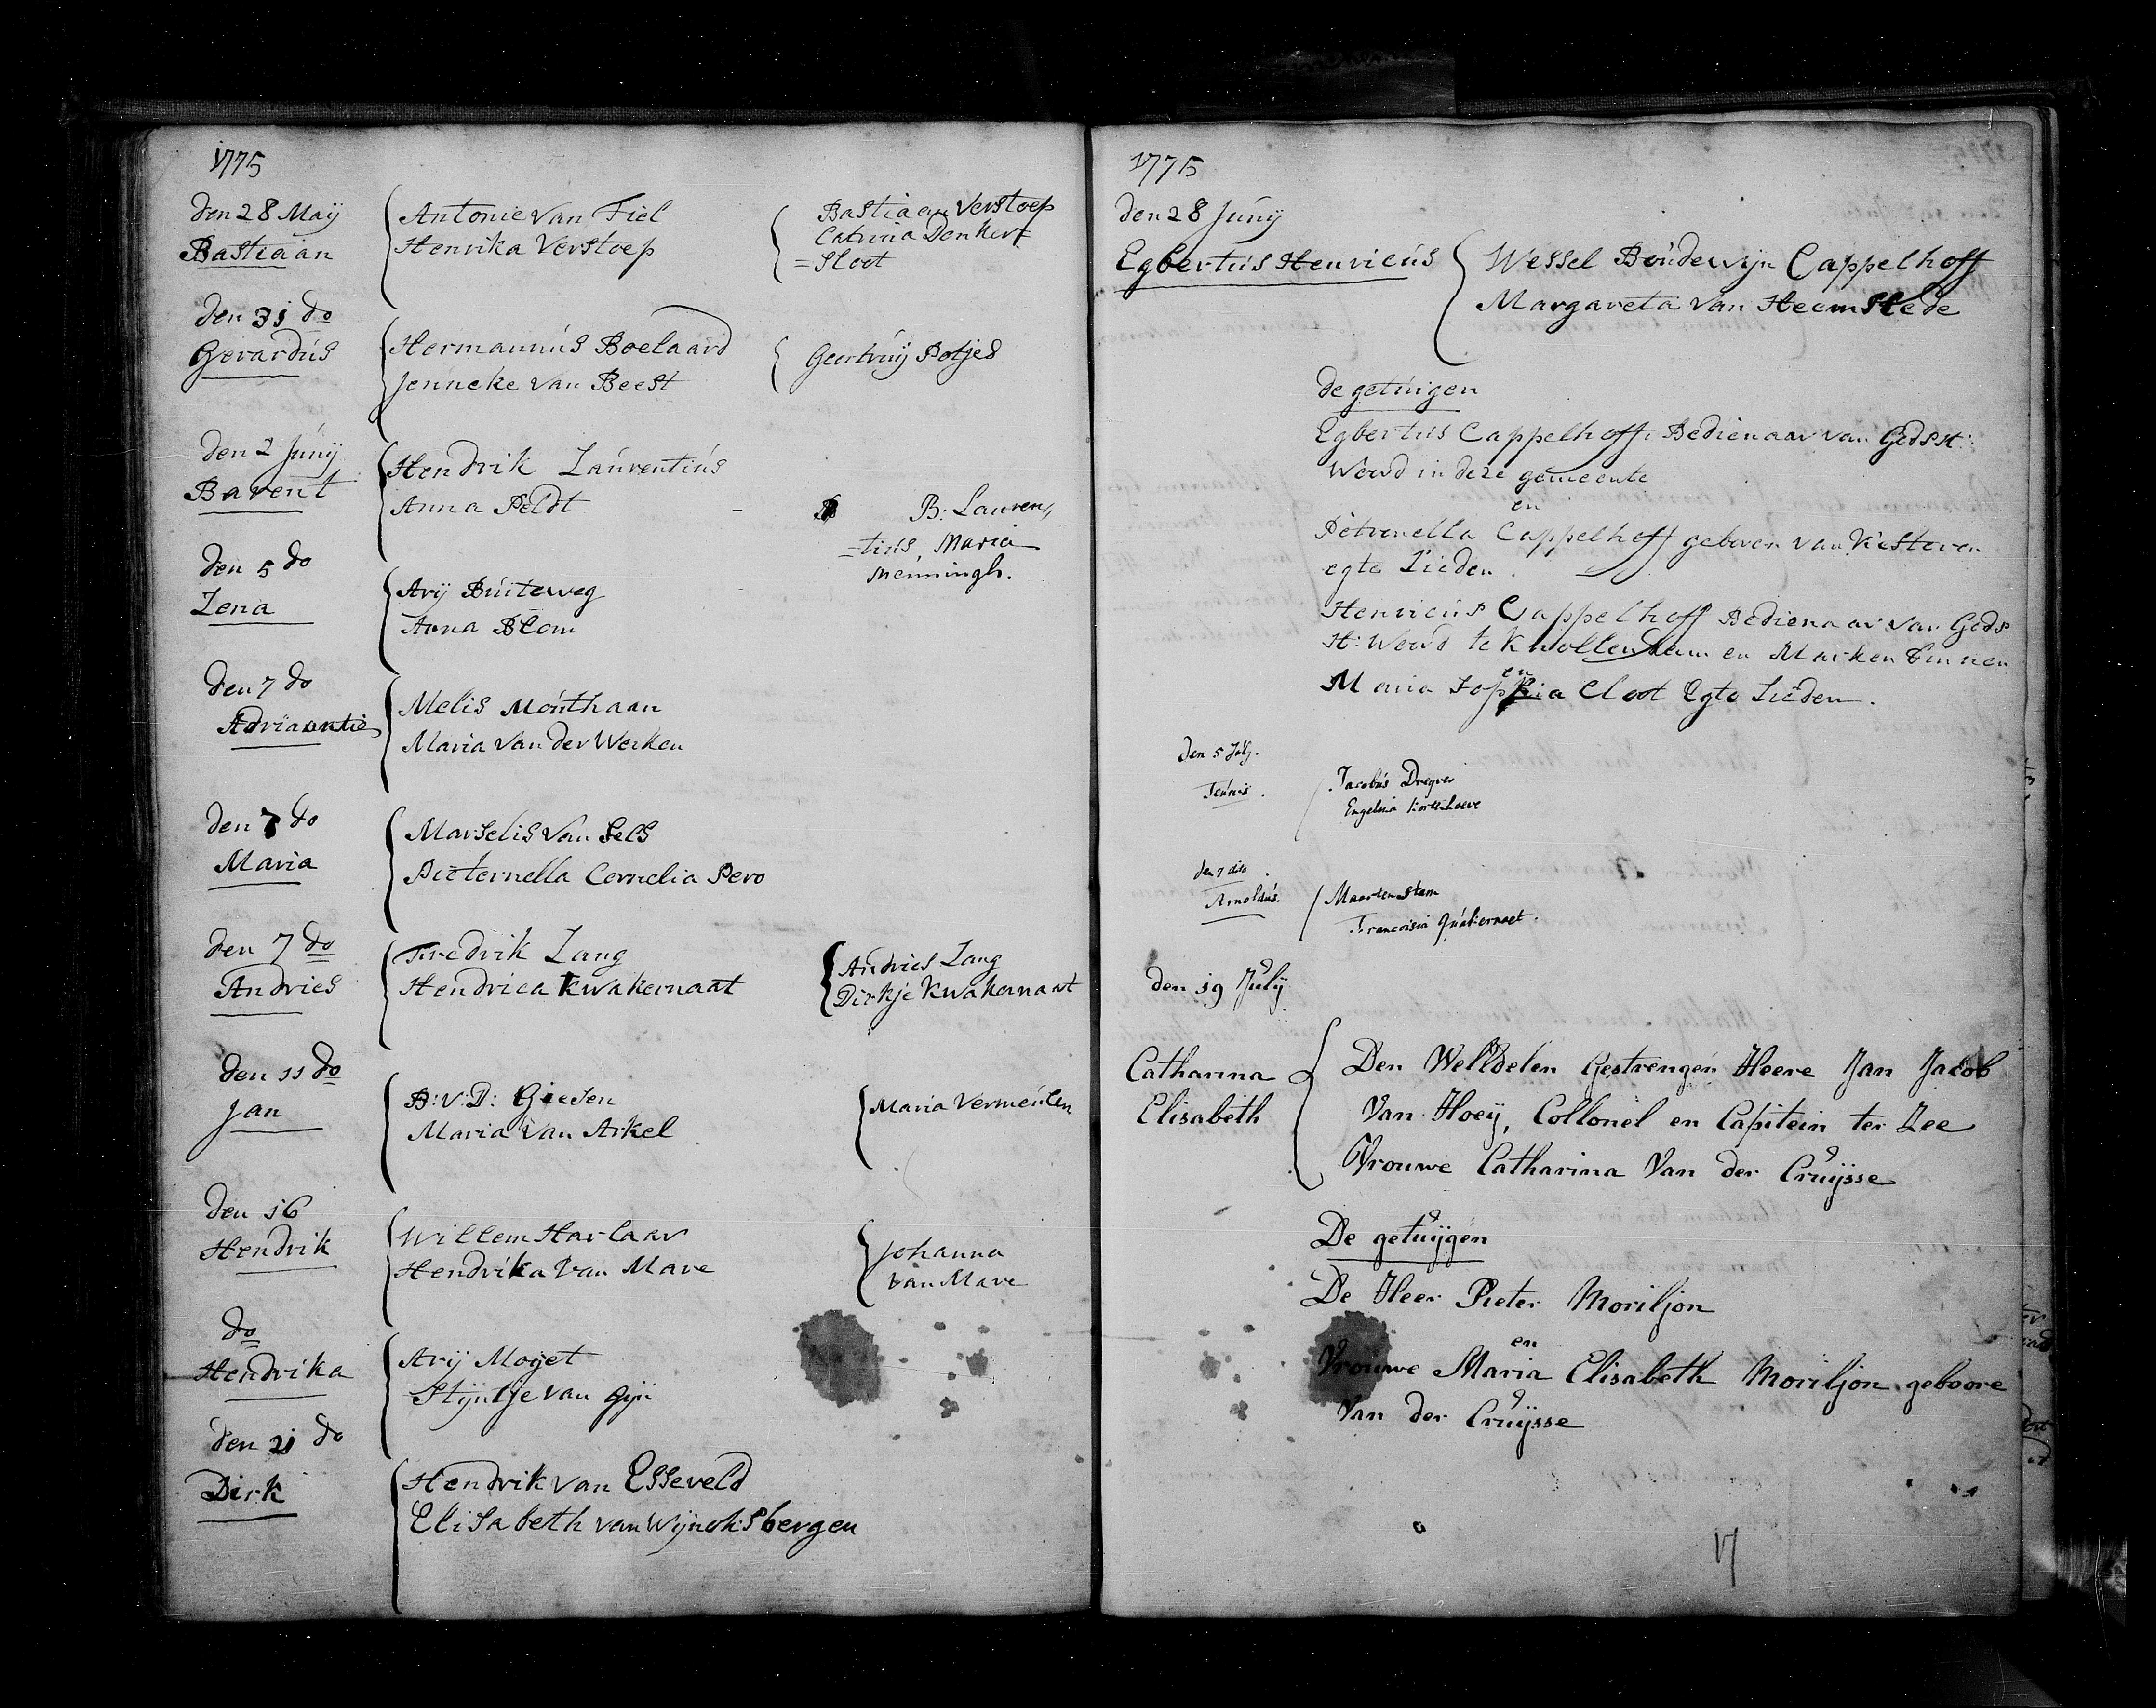 1775
den 28 Maij
Bastiaan
Antonie van Tiel
Henrika Verstoep
Bastiaan Verstoep
Catrina Denker=
=Sloot
den 31 do
Gerardus
Hermannus Boelaard
Jenneke van Beest
Geertruij Botjes
den 2 Junij
Barent
Hendrik Laurentius
Anna Peldt
B: Lauren,,
=tius, Maria
den 5 do
Lena
Arij Buiteweg
Anna Blom
den 7 do
Adriaantie
Melis Monthaan
Maria van der Werken
den 7 do
Maria
Marselis van Sels
Pieternella Cornelia Pero
den 7 do
Andries
Fredrik Lang
Hendrica Kwakernaat
Andries Lang
Dirkje Kwakernaat
den 11 do
Jan
B: V: D: Giesen
Maria van Arkel
Maria Vermeulen
den 16
Hendrik
Willem Harlaar
Hendrika van Mare
Johanna
van Mare
do
Hendrika
Arij Moijet
Stijntje van Gijn
den 21 do
Dirk
Hendrik van Esseveld
Elisabeth van Wijnoksbergen
1775
den 28 Junij
Egbertus Henricus
Wessel Boudewijn Cappelhoff
Margareta van Heemstede
de getuigen
Egbertus Cappelhoff, Bedienaar van Gods H:
Woord in deze gemeente
en
Petronella Cappelhoff geboren van Kesteren
egte Lieden.
Henricus Cappelhoff Bedienaar van Gods
H: Woord te Knollendam en Marken binnen
en
Maria Sophia Cloot Egte Lieden.
den 5 July.
Teunis.
Jacobus Dregver
Engelina
den 7 dito
Arnoldus.
Maarten Stam
Francoisia Quakernaet.
den 19 July
Catharina
Elisabeth
Den WelEdelen Gestrengen Heere Jan Jacob
Van Hoey, Collonel en Capitein ter Zee
Vrouwe Catharina Van der Cruijsse
De getuijgen
De Heer Pieter Moriljon
en
Vrouwe Maria Elisabeth Moriljon geboore
Van der Cruijsse
17